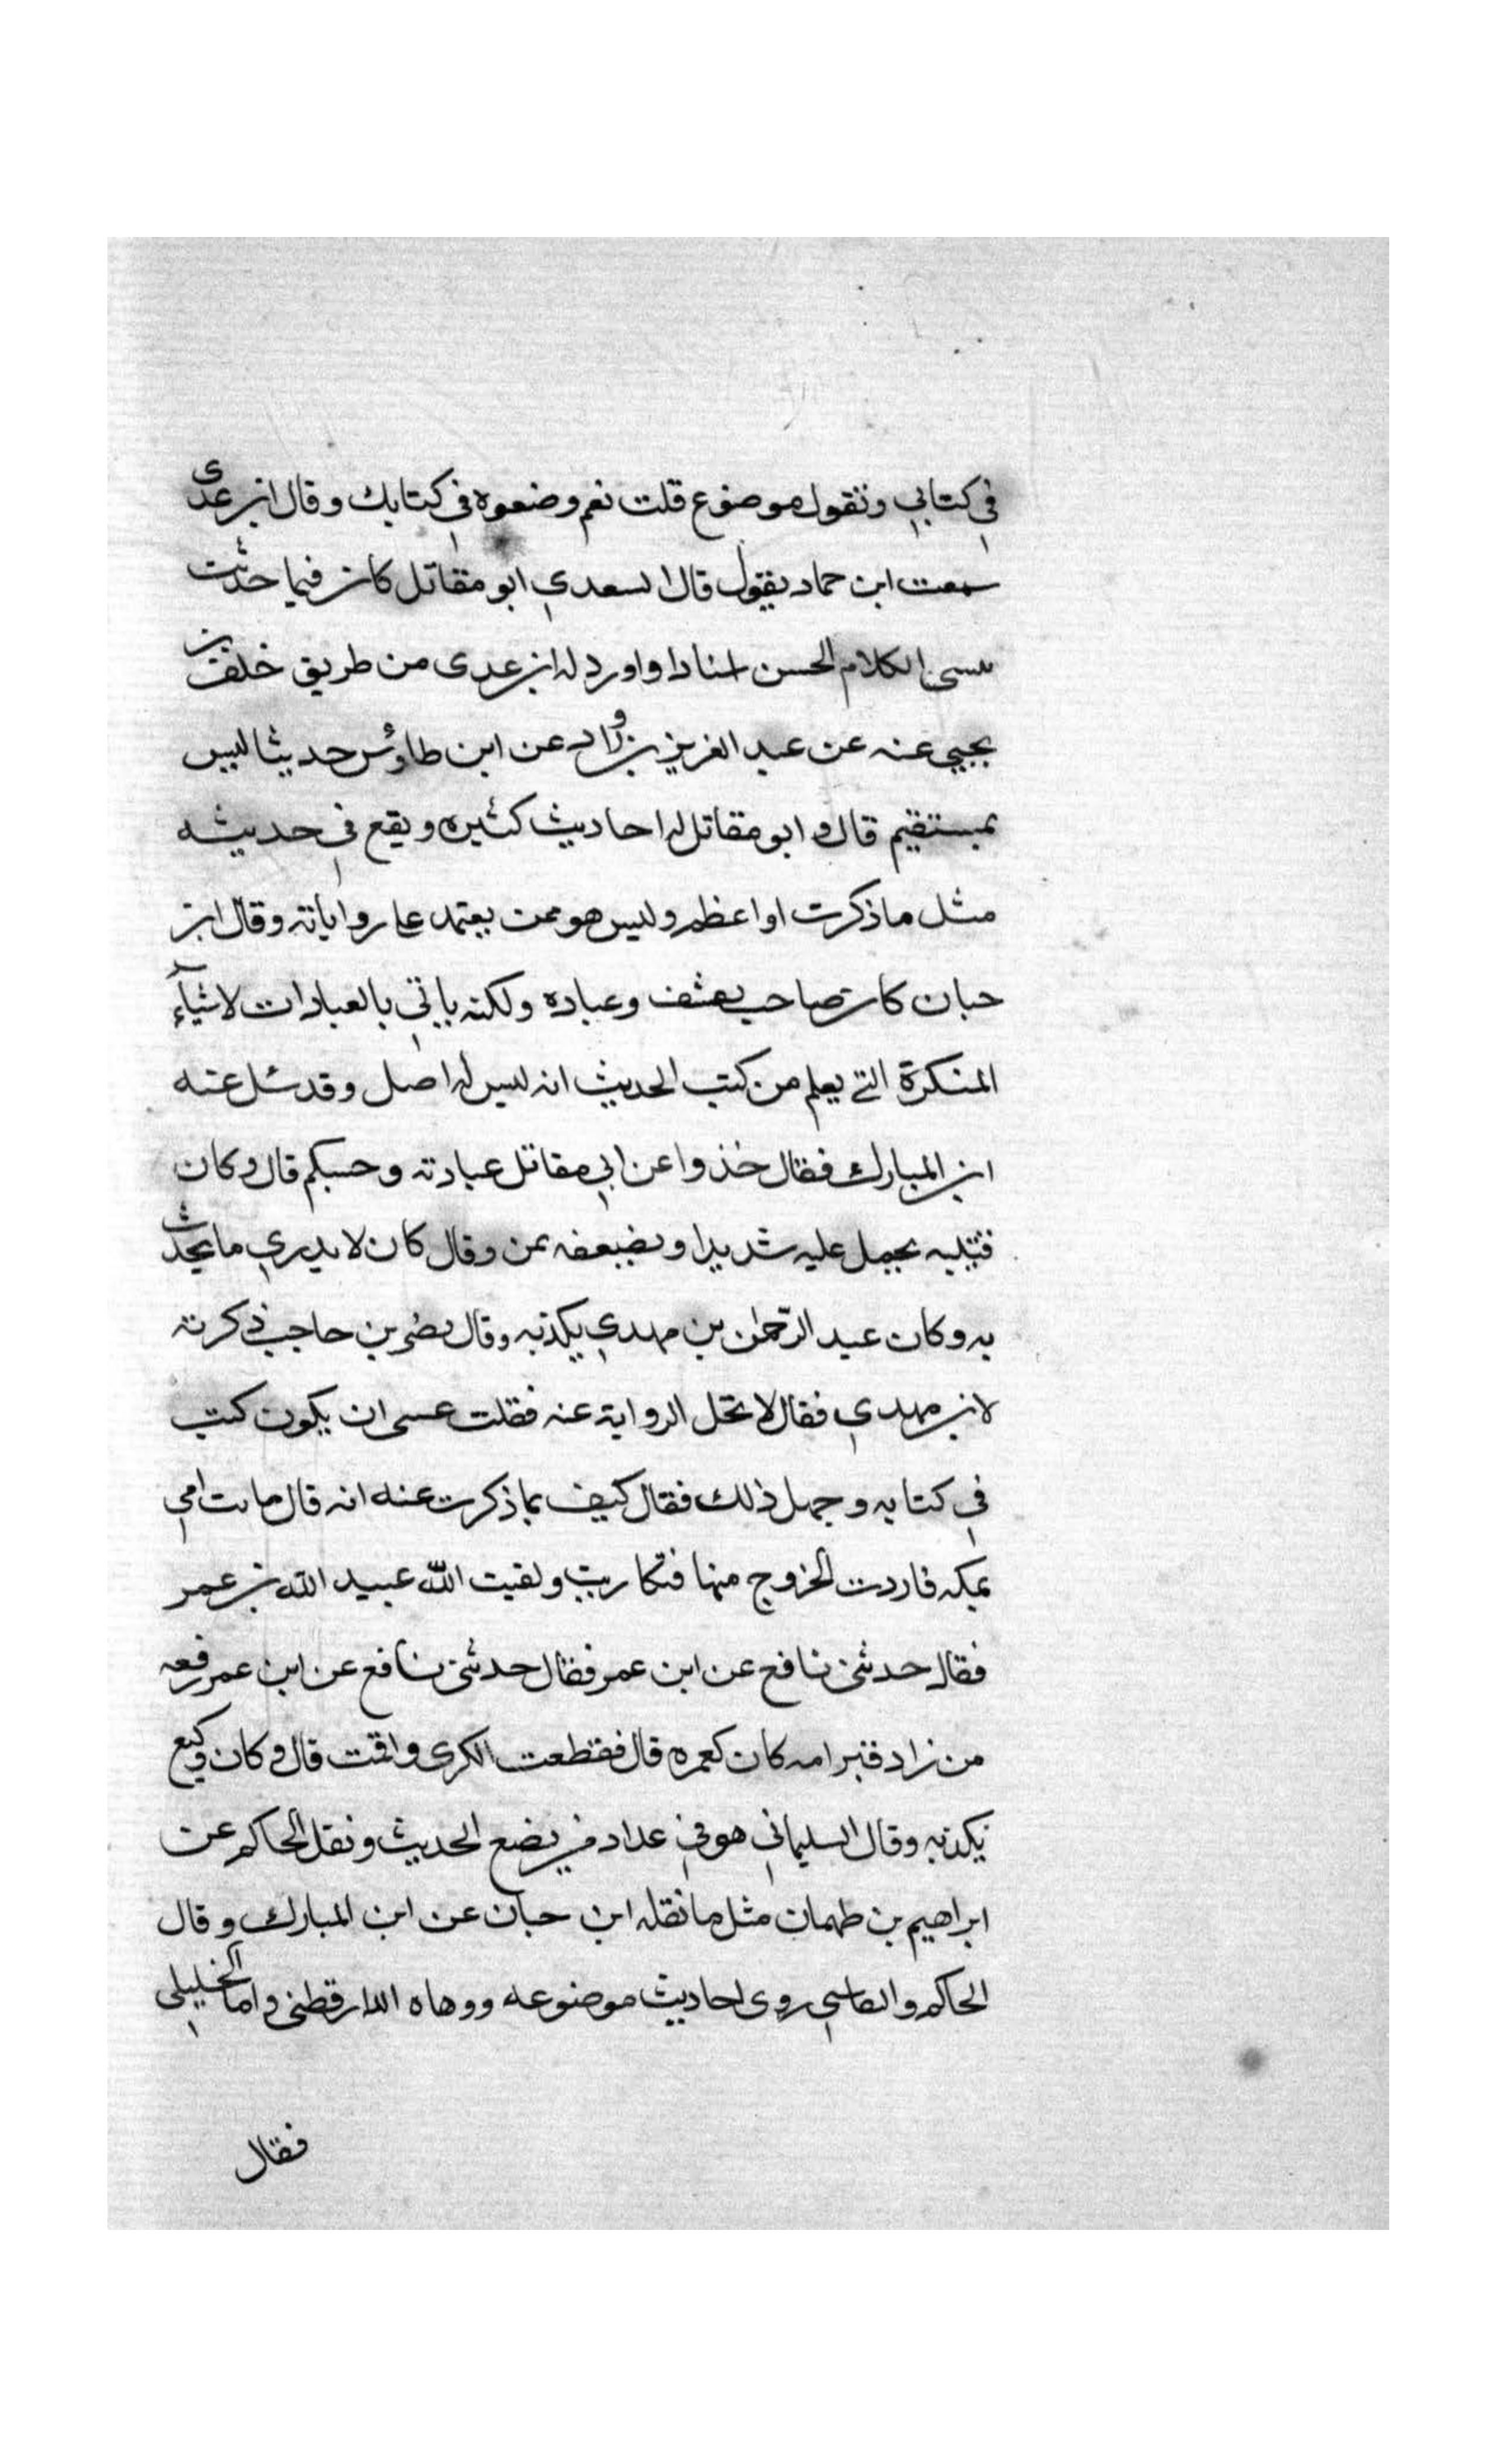 في كتابي وتقول موضوع قلت نعم وضعوه في كتابك وقال ابن عدى
سمعت ابن حماد يقول قال السعدي ابو مقاتل كان فيما حدثت
ينسى الكلام الحسن اسنادا واورد له ابن عدى من طريق خلف بن
يحيي عنه عن عبد العزيز بن رواد عن ابن طاوس حديثا ليس
بمستقيم قال وابو مقاتل له احاديث كثيره ويقع في حديثه
مثل ما ذكرت او اعظم وليس هو ممن يعتمد على رواياته وقال ابن
حبان كان صاحب تقشف وعباده ولكنه ياتي بالعبادات لاشياء
المنكرة التي يعلم من كتب الحديث انه ليس له اصل وقد سئل عنه
ابن المبارك فقال خذوا عن ابي مقاتل عبادته وحسبكم قال وكان
قتيبه يحمل عليه شديدا ويضعفه بمن وقال كان لا يدري ما يحدث
به وكان عبد الرحمن بن مهدي يكذبه وقال نضر بن حاجب ذكرته
لابن مهدي فقال لا تحل الرواية عنه فقلت عسى ان يكون كتب
في كتابه وجهل ذلك فقال كيف بما ذكرت عنه انه قال ماتت امي
بمكه فاردت الخروج منها فتكاريت ولقيت الله عبيد الله بن عمر
فقال حدثني نافع عن ابن عمر فقال حدثني نافع عن ابن عمر رفعه
من زاد قبر امه كان كعمره قال فقطعت الكرى واقمت قال وكان وكيع
يكذبه وقال السليماني هو في عداد من يضع الحديث ونقل الحاكم عن
ابراهيم بن طهمان مثل ما نقله ابن حبان عن ابن المبارك وقال
الحاكم والنقاش روى احاديث موضوعه ووهاه الدارقطني واما الخليلي
فقال